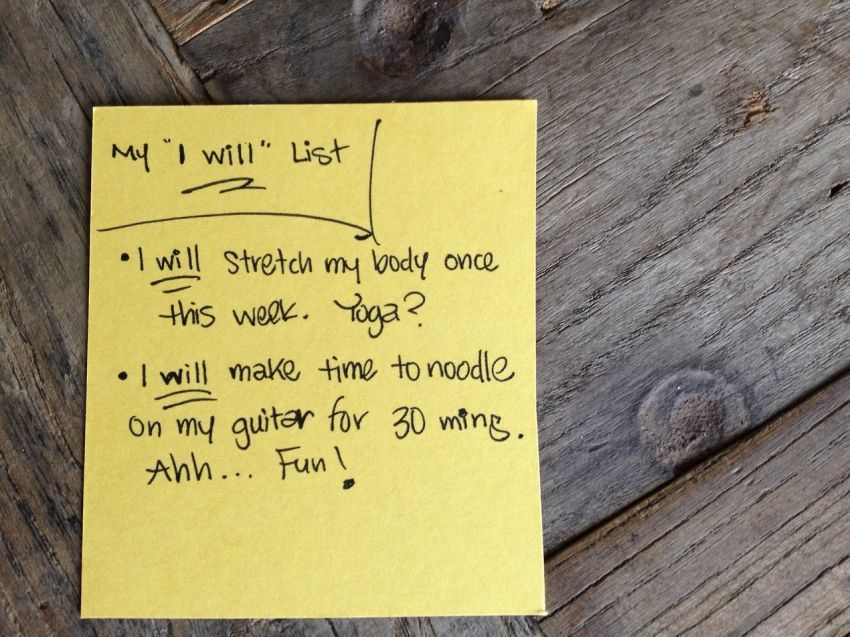 My "I will" List
• I will stretch my body once
this week. Yoga?
• I will make time to noodle
on my guitar for 30 mins.
Ahh... Fun!